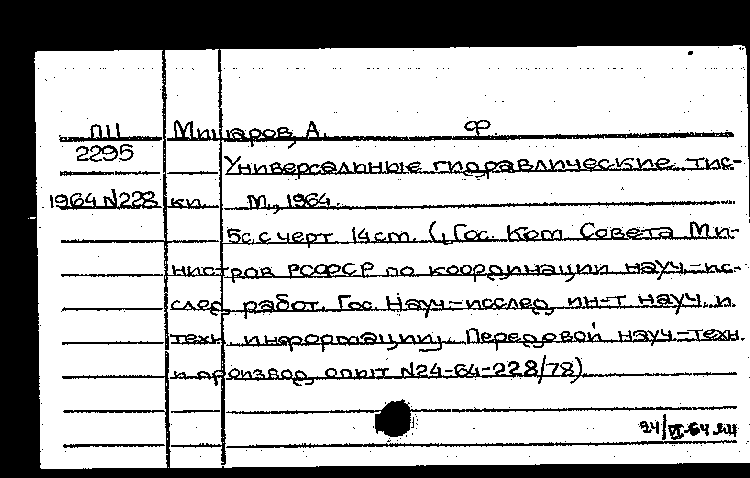 ПП Мишаров, А. Ф
2295 Универсальные гидравлические тис-
1964 N228 ки. М., 1964.
5с. с черт. 14 см. (Гос. Ком. Совета Ми-
нистров РСФСР по координации науч.-ис-
след. работ. Гос. Науч.-исслед. ин-т науч. и
техн. информации. Передовой науч.-техн.
и производ. опыт N24-64-228/78)